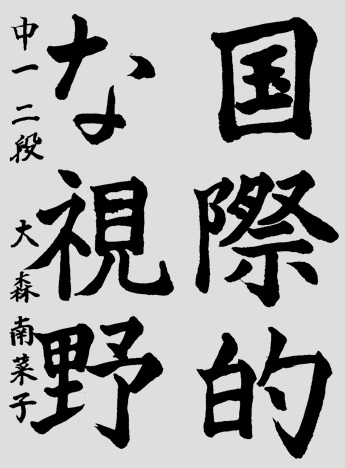 国際的
な視野
中一 二段 大森南菜子